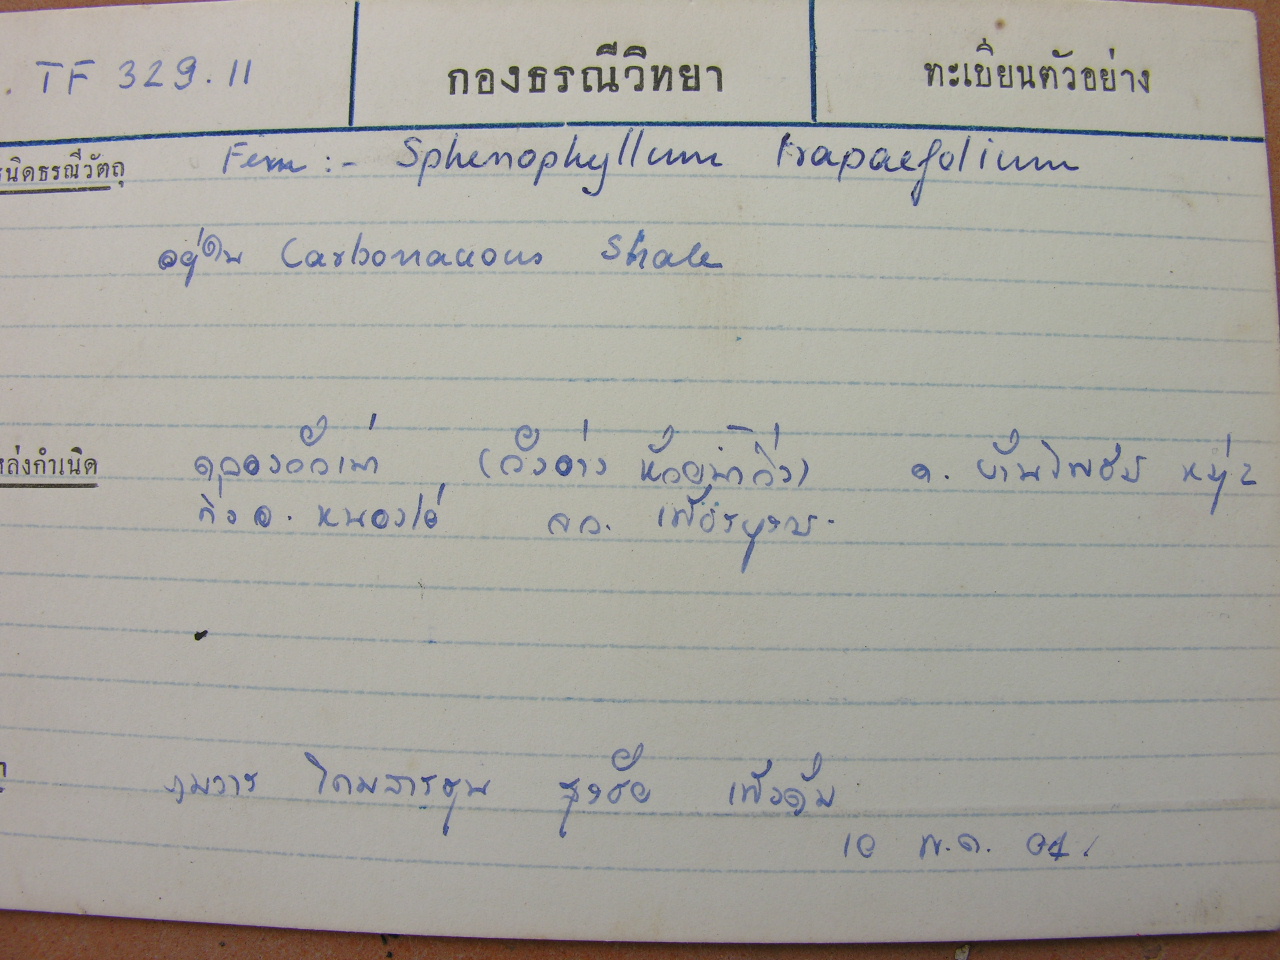 TF 329.11 กองธรณีวิทยา ทะเบียนตัวอย่าง
ชนิดธรณีวัตถุ Fern :- Sphenophyllum trapaefolium
อยู่ใน Carbonaceous Shale
แหล่งกำเนิด คลองวังเก่า (วังอ่าง ห้วยน้ำวิ่ง) ต. บ้านโพธิ์ หมู่ 2
กิ่ง อ. หนองไผ่ จว. เพ็ชรบูรณ์
โกมลารชุน ธงชัย
10 พ.ค. 04